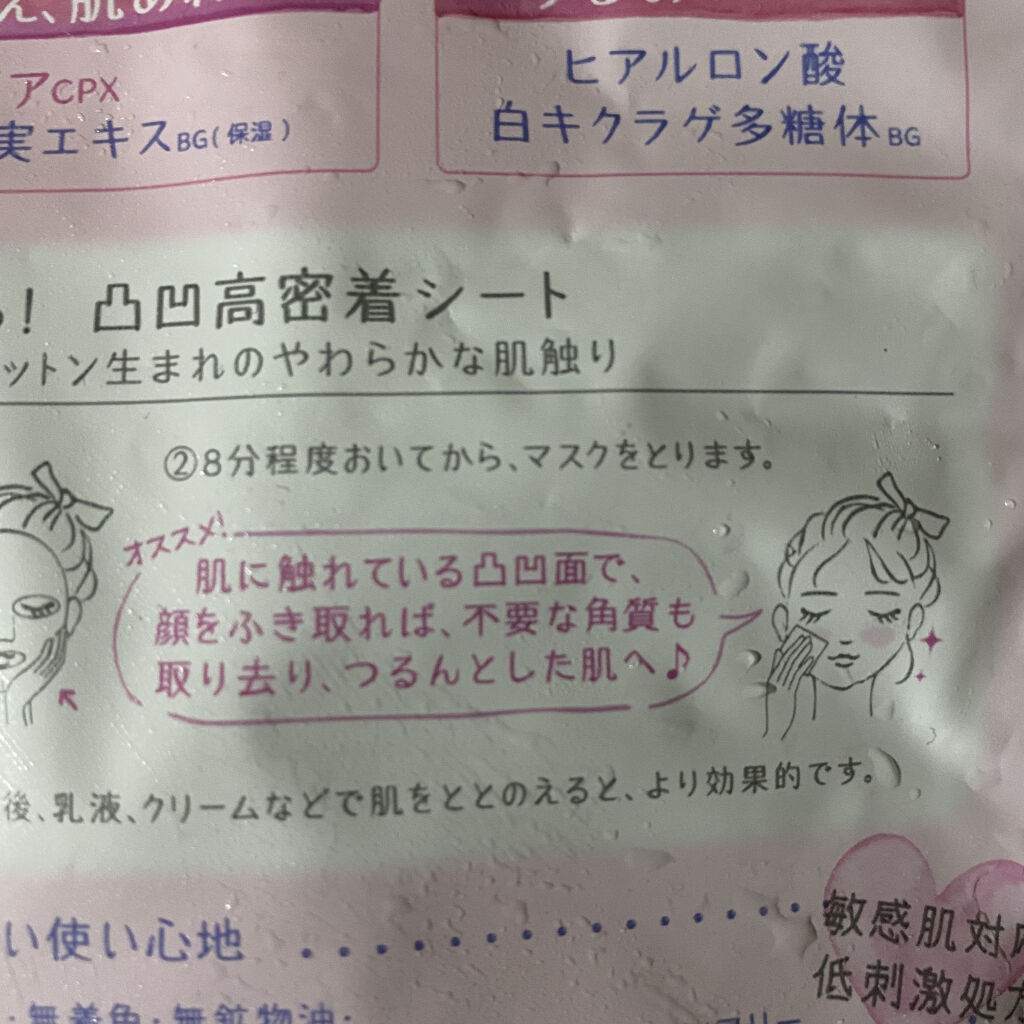 え、肌あれ
アCPX
実エキスBG(保湿)
ヒアルロン酸
白キクラゲ多糖体BG
! 凸凹高密着シート
ットン生まれのやわらかな肌触り
②8分程度おいてから、マスクをとります。
オススメ!
肌に触れている凸凹面で、
顔をふき取れば、不要な角質も
取り去り、つるんとした肌へ♪
後、乳液、クリームなどで肌をととのえると、より効果的です。)
い使い心地
敏感肌対応
低刺激処方
・無着色・無鉱物油・
フリー